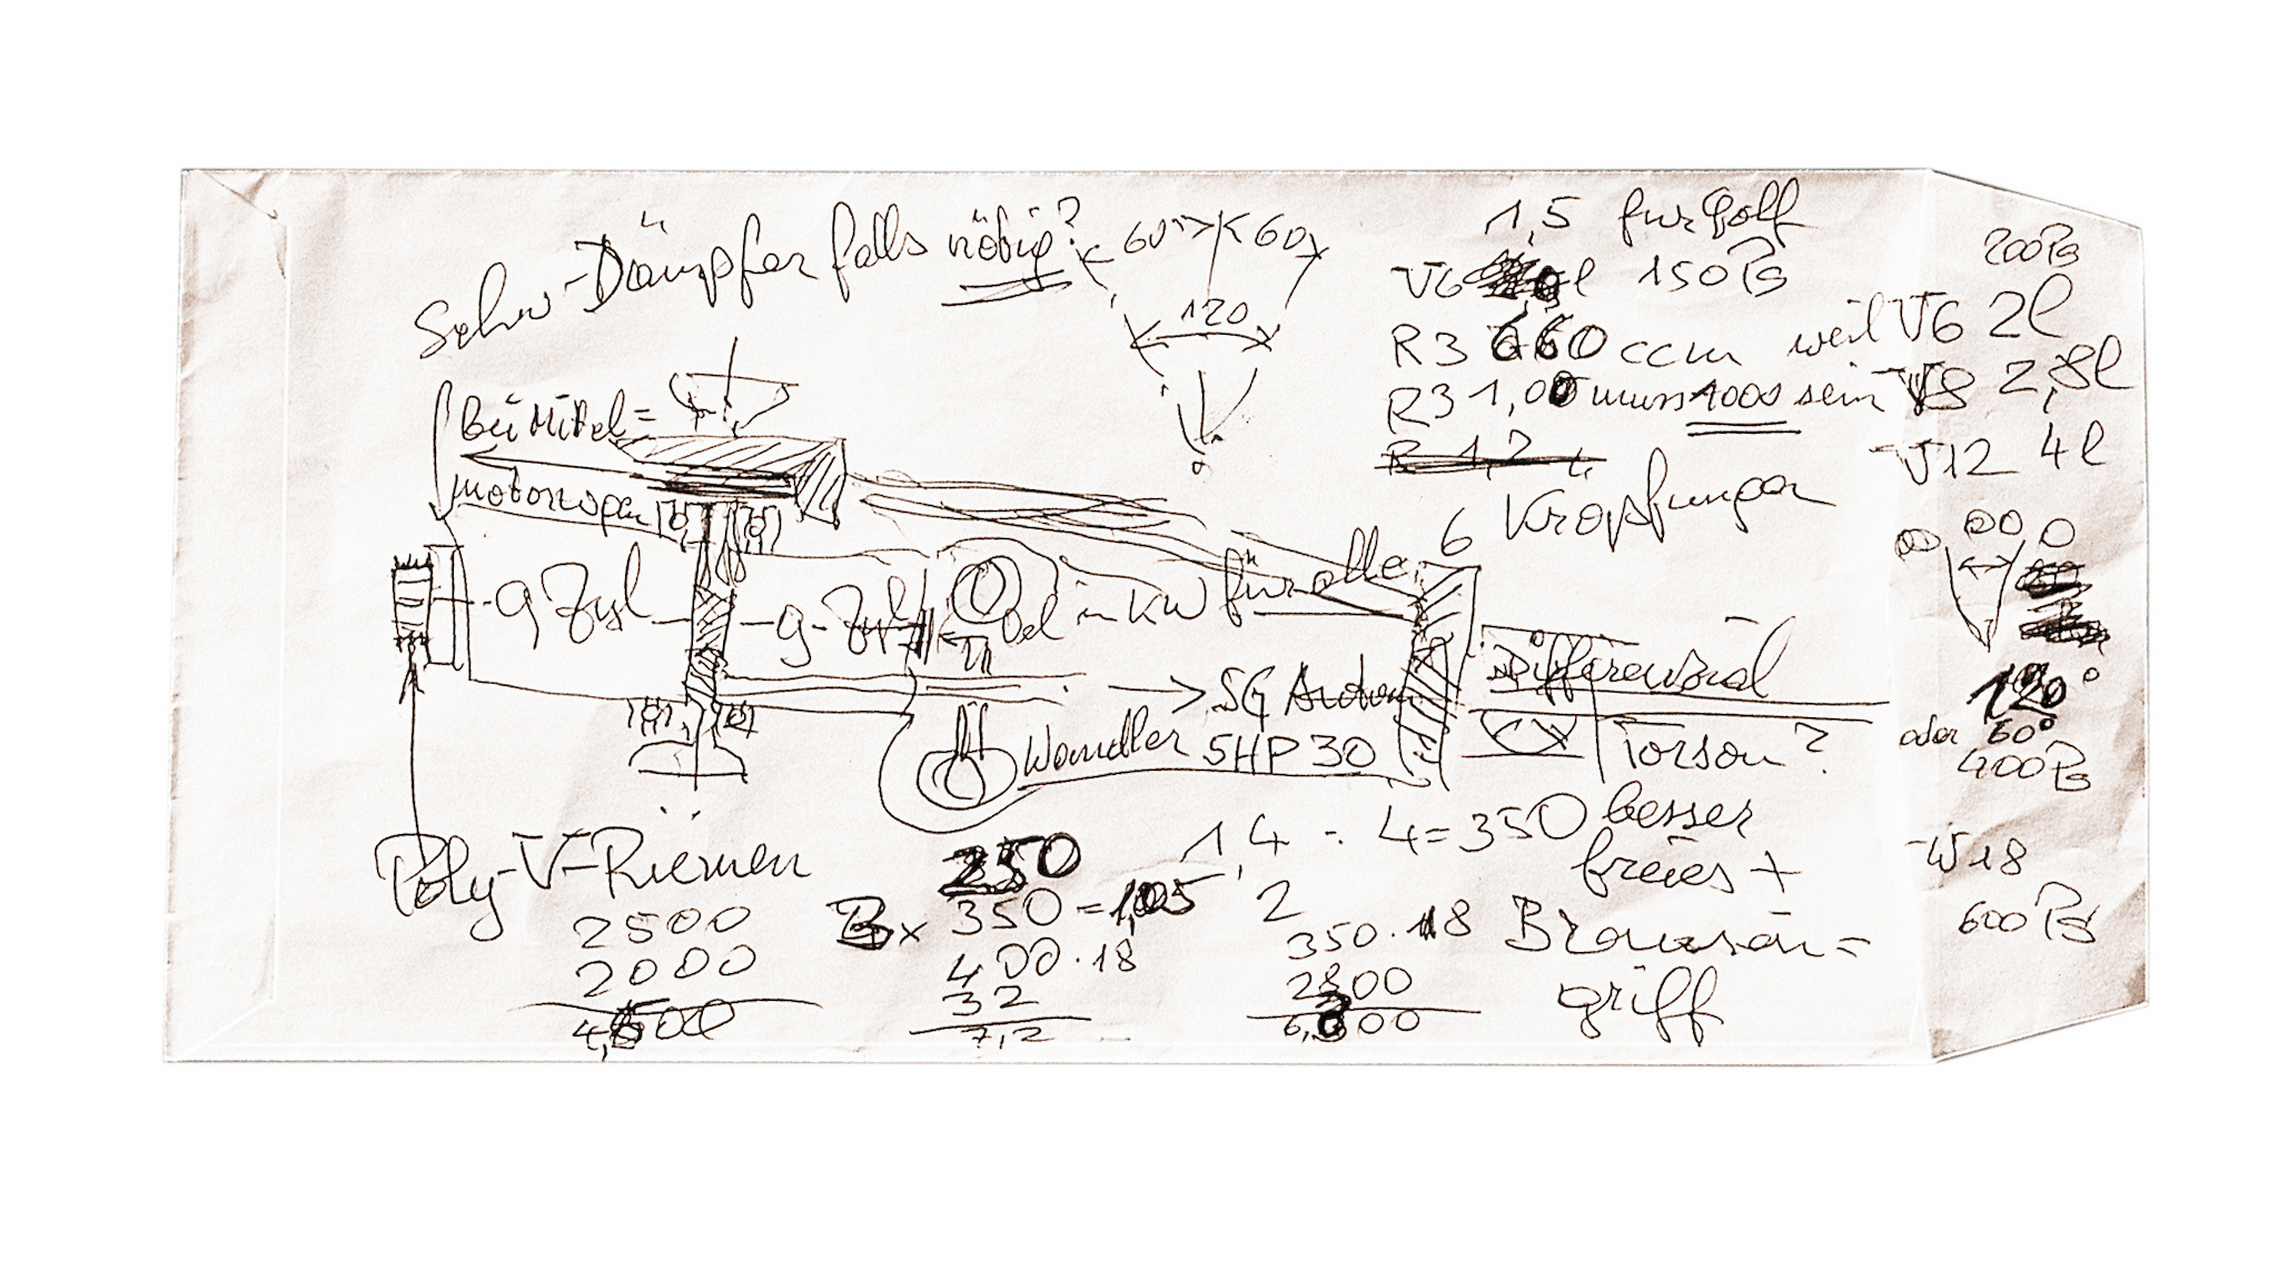 Schw-Dämpfer falls nötig?
60° 60
120
1,5 fur Golf
V6 l 150 PS
R3 660 ccm weil
R3 1,00 muss 1000 sein
R 1,2 L
6 Kröpfungen
200 PS
V6 2l
V8 2,8l
V12 4l
120°
oder 60°
400 PS
W18
600 PS
Bei Mittel=
motorwagen
9 Zyl 9-Zyl
Oel in KW für alle
5G Autom
Wandler 5HP30
Differenzial
Torson?
besser
freies +
Brauson=
griff
Poly-V-Riemen
2500
2000
4,500
250
350 = 1,05
400 · 18
32
7,2
1,4 : 4 = 350
2
350 · 18
2800
6,300